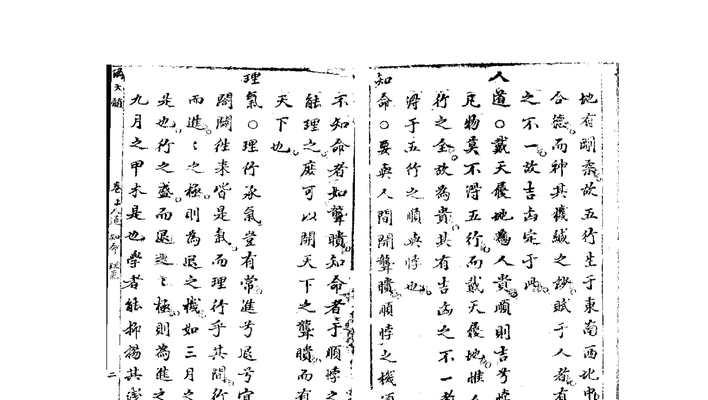 地有剛柔故五行生于東南西北中
合德而神其機緘之妙賦于人者有
之不一故吉凶定于此
人道○戴天履地為人貴順則吉兮悖
凡物莫不得五行而戴天履地惟人
行之全故為貴其有吉凶之不一者
得于五行之順與悖也
知命○要與人間開聾聵順悖之機須
不知命者如聾聵知命者于順悖之
能理之庶可以開天下之聾聵而有
天下也
理氣○理行承氣豈有常進兮退兮宜
闔闢往來皆是氣而理行乎其間行
而進〻之極則為退之機如三月之
是也行之盛而退退〻極則為進之
九月之甲木是也學者能抑揚其淺
滴天髓 卷上 人道 知命 理氣 二